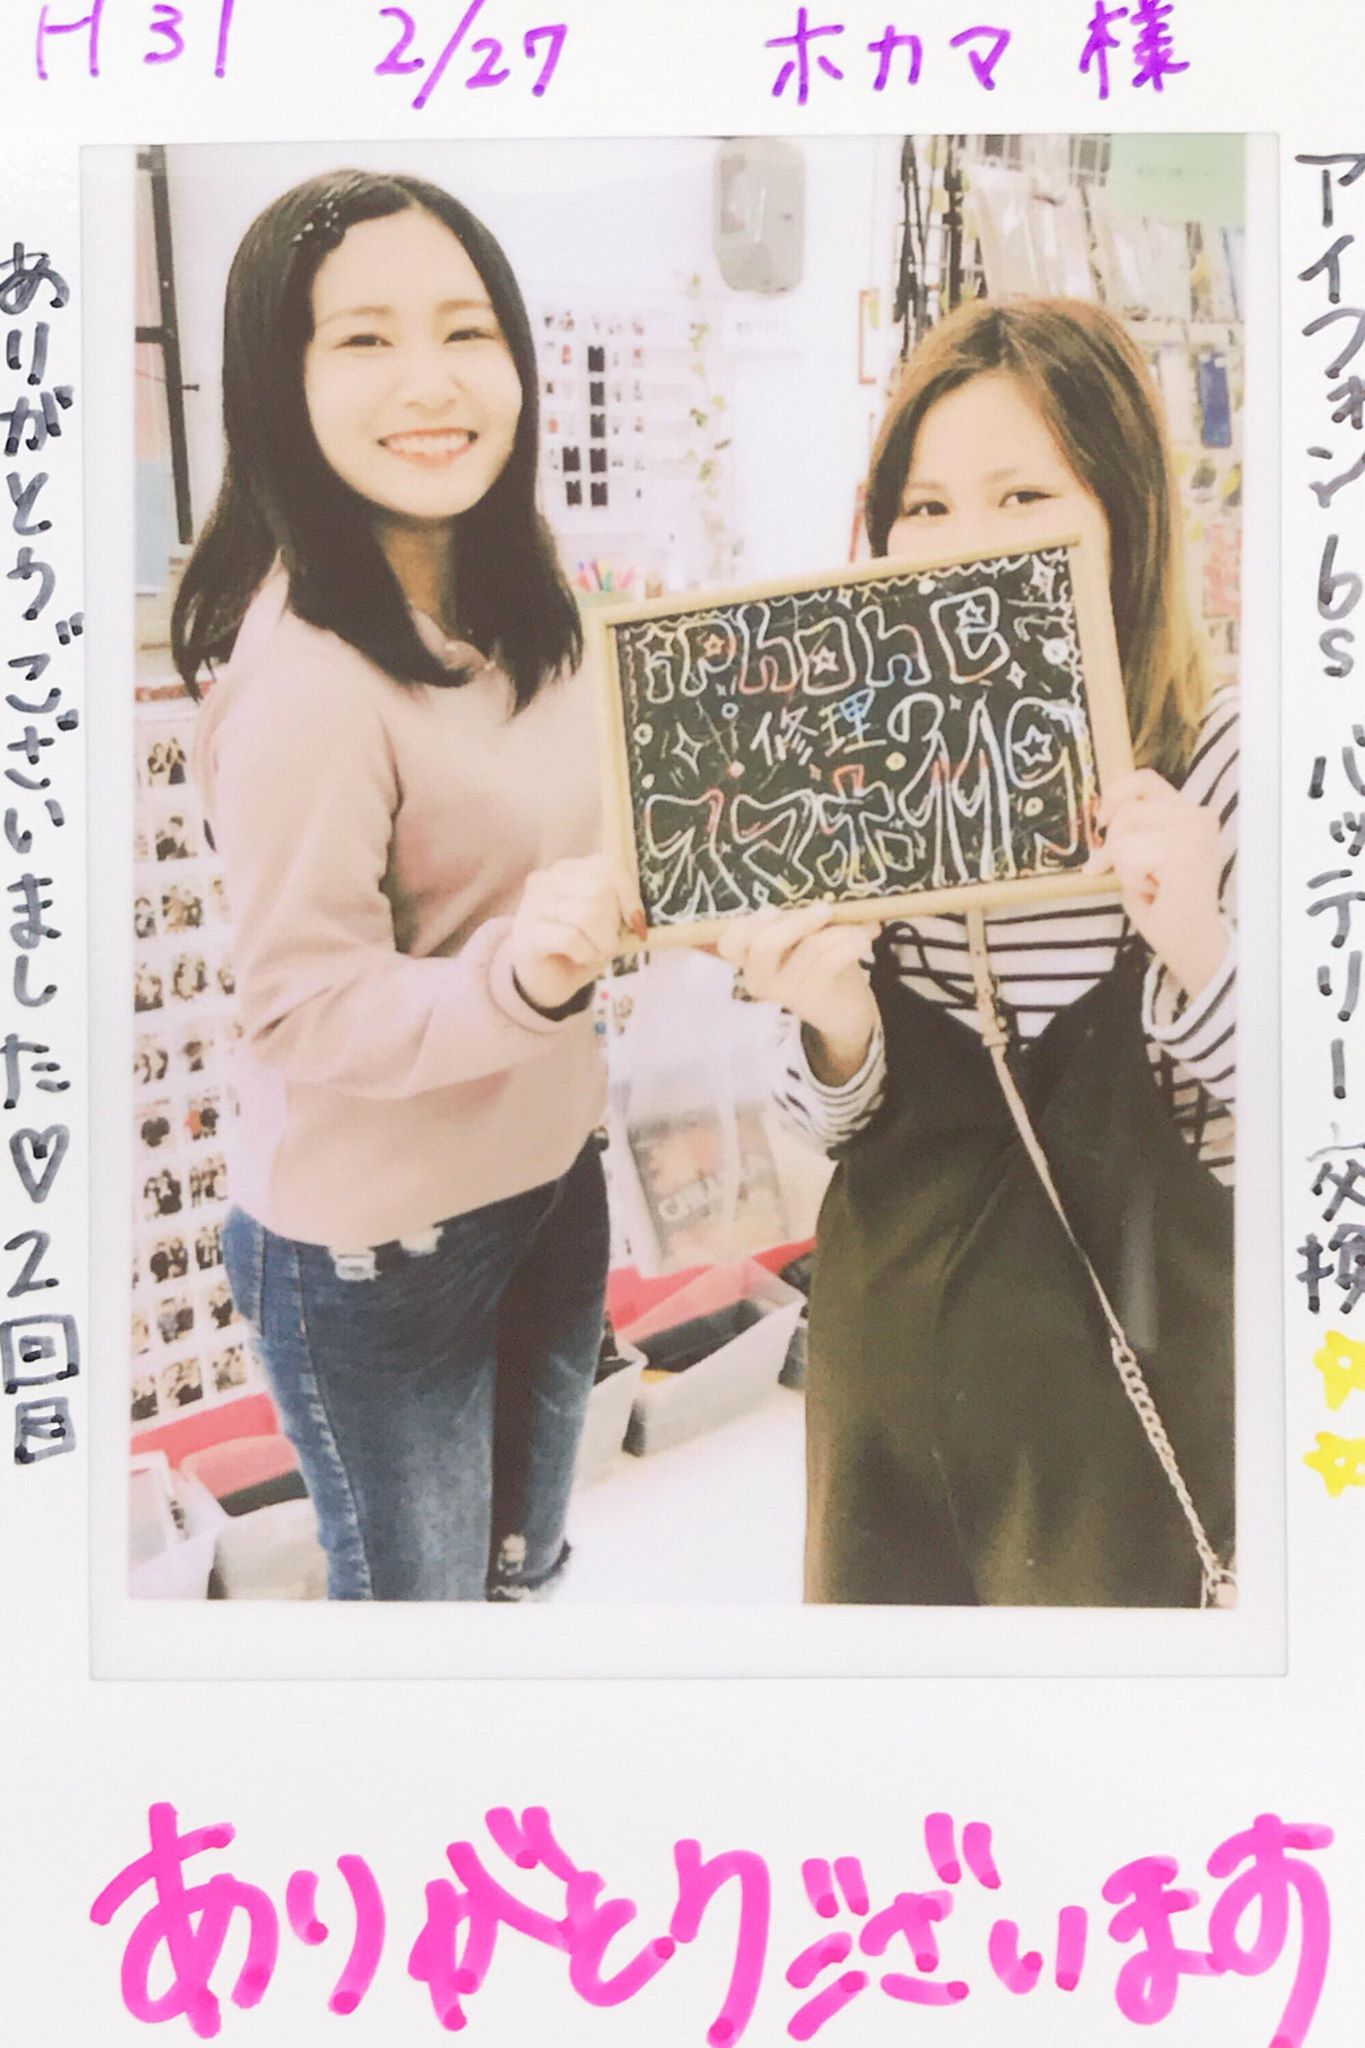 H31 2/27 ホカマ様
アイフォン6s バッテリー交換
ありがとうございました♡2回目
iPhone
修理の
スマホ修理
ありがとうございます